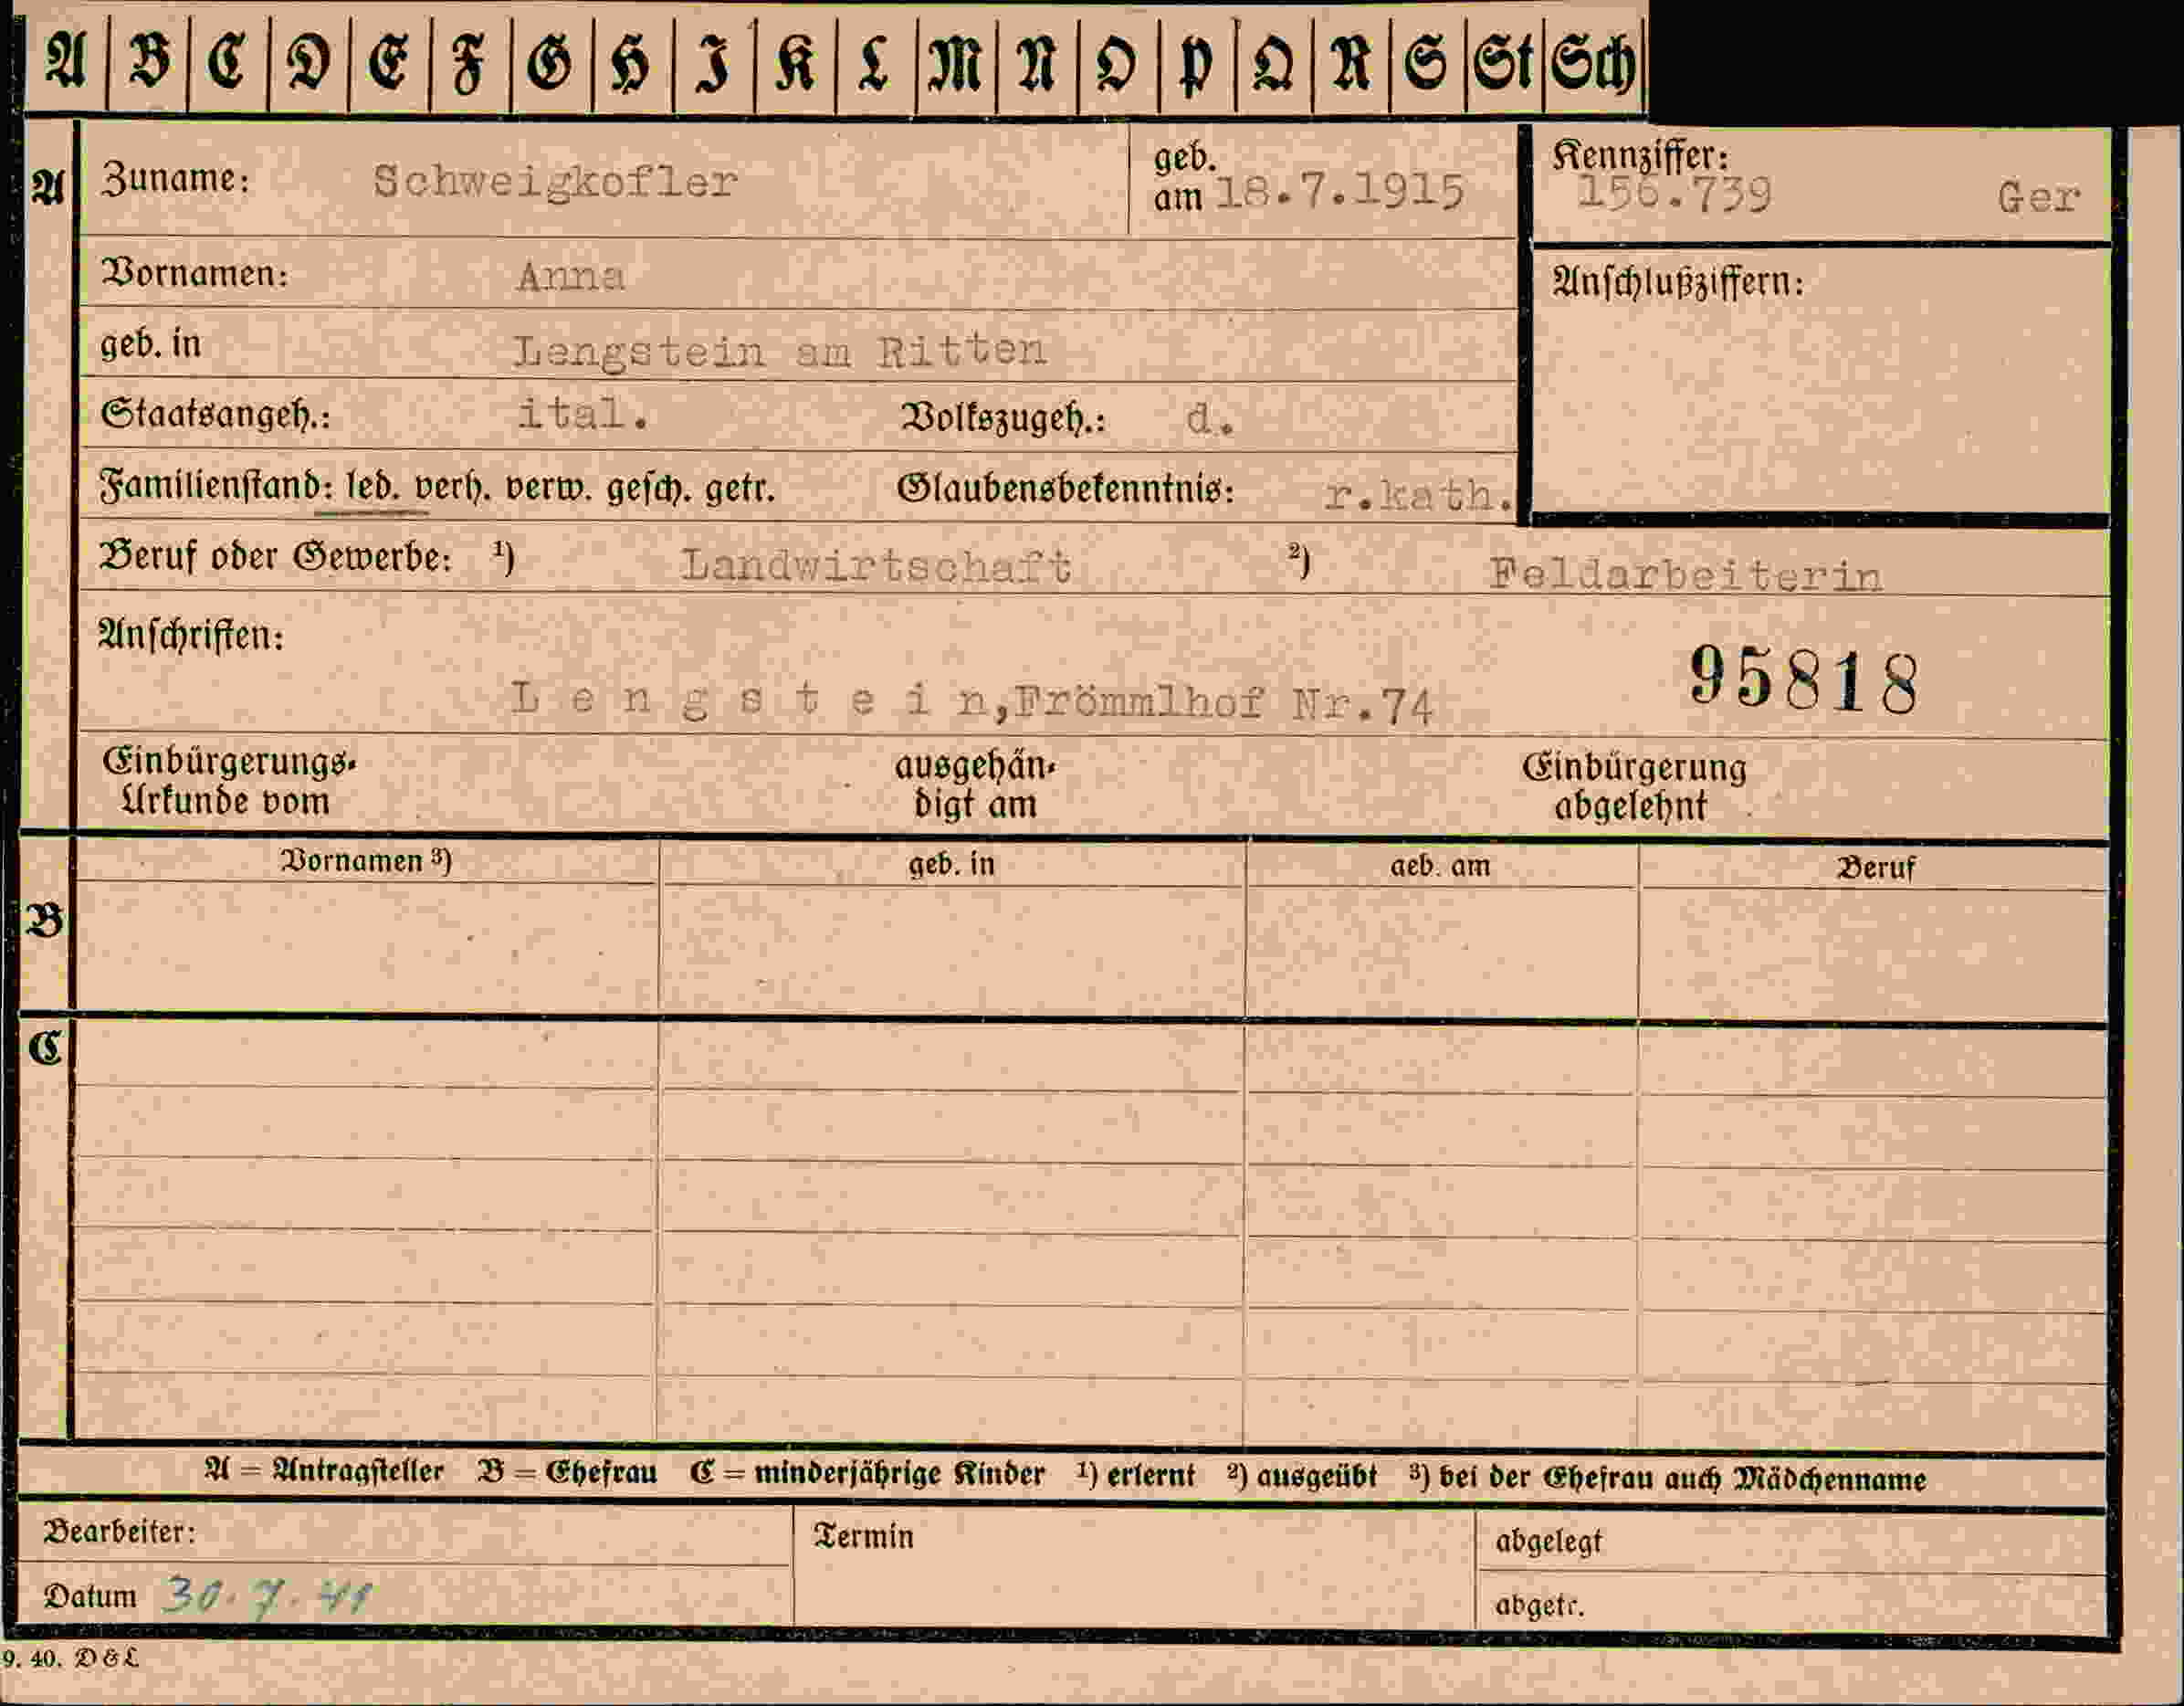 A B C D E F G H I K L M N O P Q R S St Sch
A Zuname: Schweigkofler geb. am 18.7.1915 Kennziffer: 156.739 Ger
Vornamen: Anna Anschlußziffern:
geb. in Lengstein am Ritten
Staatsangeh.: ital. Volkszugeh.: d.
Familienstand: led. verh. verw. gesch. getr. Glaubensbekenntnis: r.kath.
Beruf oder Gewerbe: ¹) Landwirtschaft ²) Feldarbeiterin
Anschriften:
L e n g s t e i n,Frömmlhof Nr.74 95818
Einbürgerungs- ausgehän- Einbürgerung
Urkunde vom digt am abgelehnt
Vornamen ³) geb. in geb. am Beruf
B
C
A = Antragsteller B = Ehefrau C = minderjährige Kinder ¹) erlernt ²) ausgeübt ³) bei der Ehefrau auch Mädchenname
Bearbeiter: Termin abgelegt
Datum 30.7.41 abgetr.
9. 40. D & L